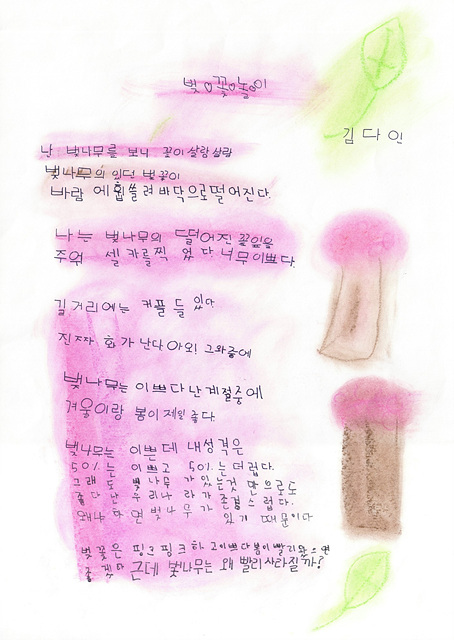 벚꽃놀이
김다인
난 벚나무를 보니 꽃이 살랑살랑
벚나무의 있던 벚꽃이
바람에 휩쓸려 바닥으로 떨어진다.
나는 벚나무의 떨어진 꽃잎을
주워 셀카를 찍었다 너무 이쁘다.
길거리에는 커플들 있다
진짜 화가 난다 아오! 그와중에
벚나무는 이쁘다 난 계절중에
겨울이랑 봄이 제일 좋다.
벚나무는 이쁜데 내성격은
50%는 이쁘고 50%는 더럽다.
그래도 벚나무가 있는것만으로도
좋다 난 우리나라가 존경스럽다.
왜냐하면 벚나무가 있기 때문이다
벚꽃은 핑크핑크하고 이쁘다 봄이 빨리 왔으면
좋겠다 근데 벚나무는 왜 빨리 사라질까?